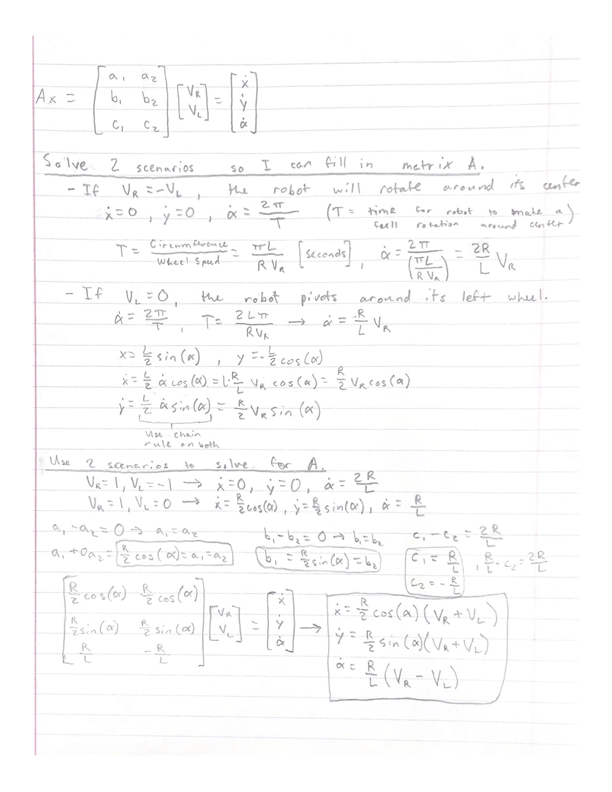 Ax = [a₁ a₂; b₁ b₂; c₁ c₂] [V_R; V_L] = [ẋ; ẏ; α̇]
Solve 2 scenarios so I can fill in metrix A.
- If V_R = -V_L, the robot will rotate around its center
ẋ=0, ẏ=0, α̇ = 2π/T (T = time for robot to make a full rotation around center)
T = Circumference/Wheel Speed = πL/(R V_R) [seconds], α̇ = 2π/(πL/(R V_R)) = 2R/L V_R
- If V_L = 0, the robot pivots around its left wheel.
α̇ = 2π/T, T = 2Lπ/(R V_R) → α̇ = R/L V_R
x = L/2 sin(α), y = -L/2 cos(α)
ẋ = L/2 α̇ cos(α) = L·R/L V_R cos(α) = R/2 V_R cos(α)
ẏ = L/2 α̇ sin(α) = R/2 V_R sin(α)
Use chain
rule on both
Use 2 scenarios to solve for A.
V_R = 1, V_L = -1 → ẋ=0, ẏ=0, α̇ = 2R/L
V_R = 1, V_L = 0 → ẋ = R/2 cos(α), ẏ = R/2 sin(α), α̇ = R/L
a₁ - a₂ = 0 → a₁ = a₂ b₁ - b₂ = 0 → b₁ = b₂ c₁ - c₂ = 2R/L
a₁ + 0a₂ = R/2 cos(α) = a₁ = a₂ b₁ = R/2 sin(α) = b₂ c₁ = R/L, R/L - c₂ = 2R/L
c₂ = -R/L
[R/2 cos(α) R/2 cos(α); R/2 sin(α) R/2 sin(α); R/L -R/L] [V_R; V_L] = [ẋ; ẏ; α̇] →
ẋ = R/2 cos(α)(V_R + V_L)
ẏ = R/2 sin(α)(V_R + V_L)
α̇ = R/L (V_R - V_L)